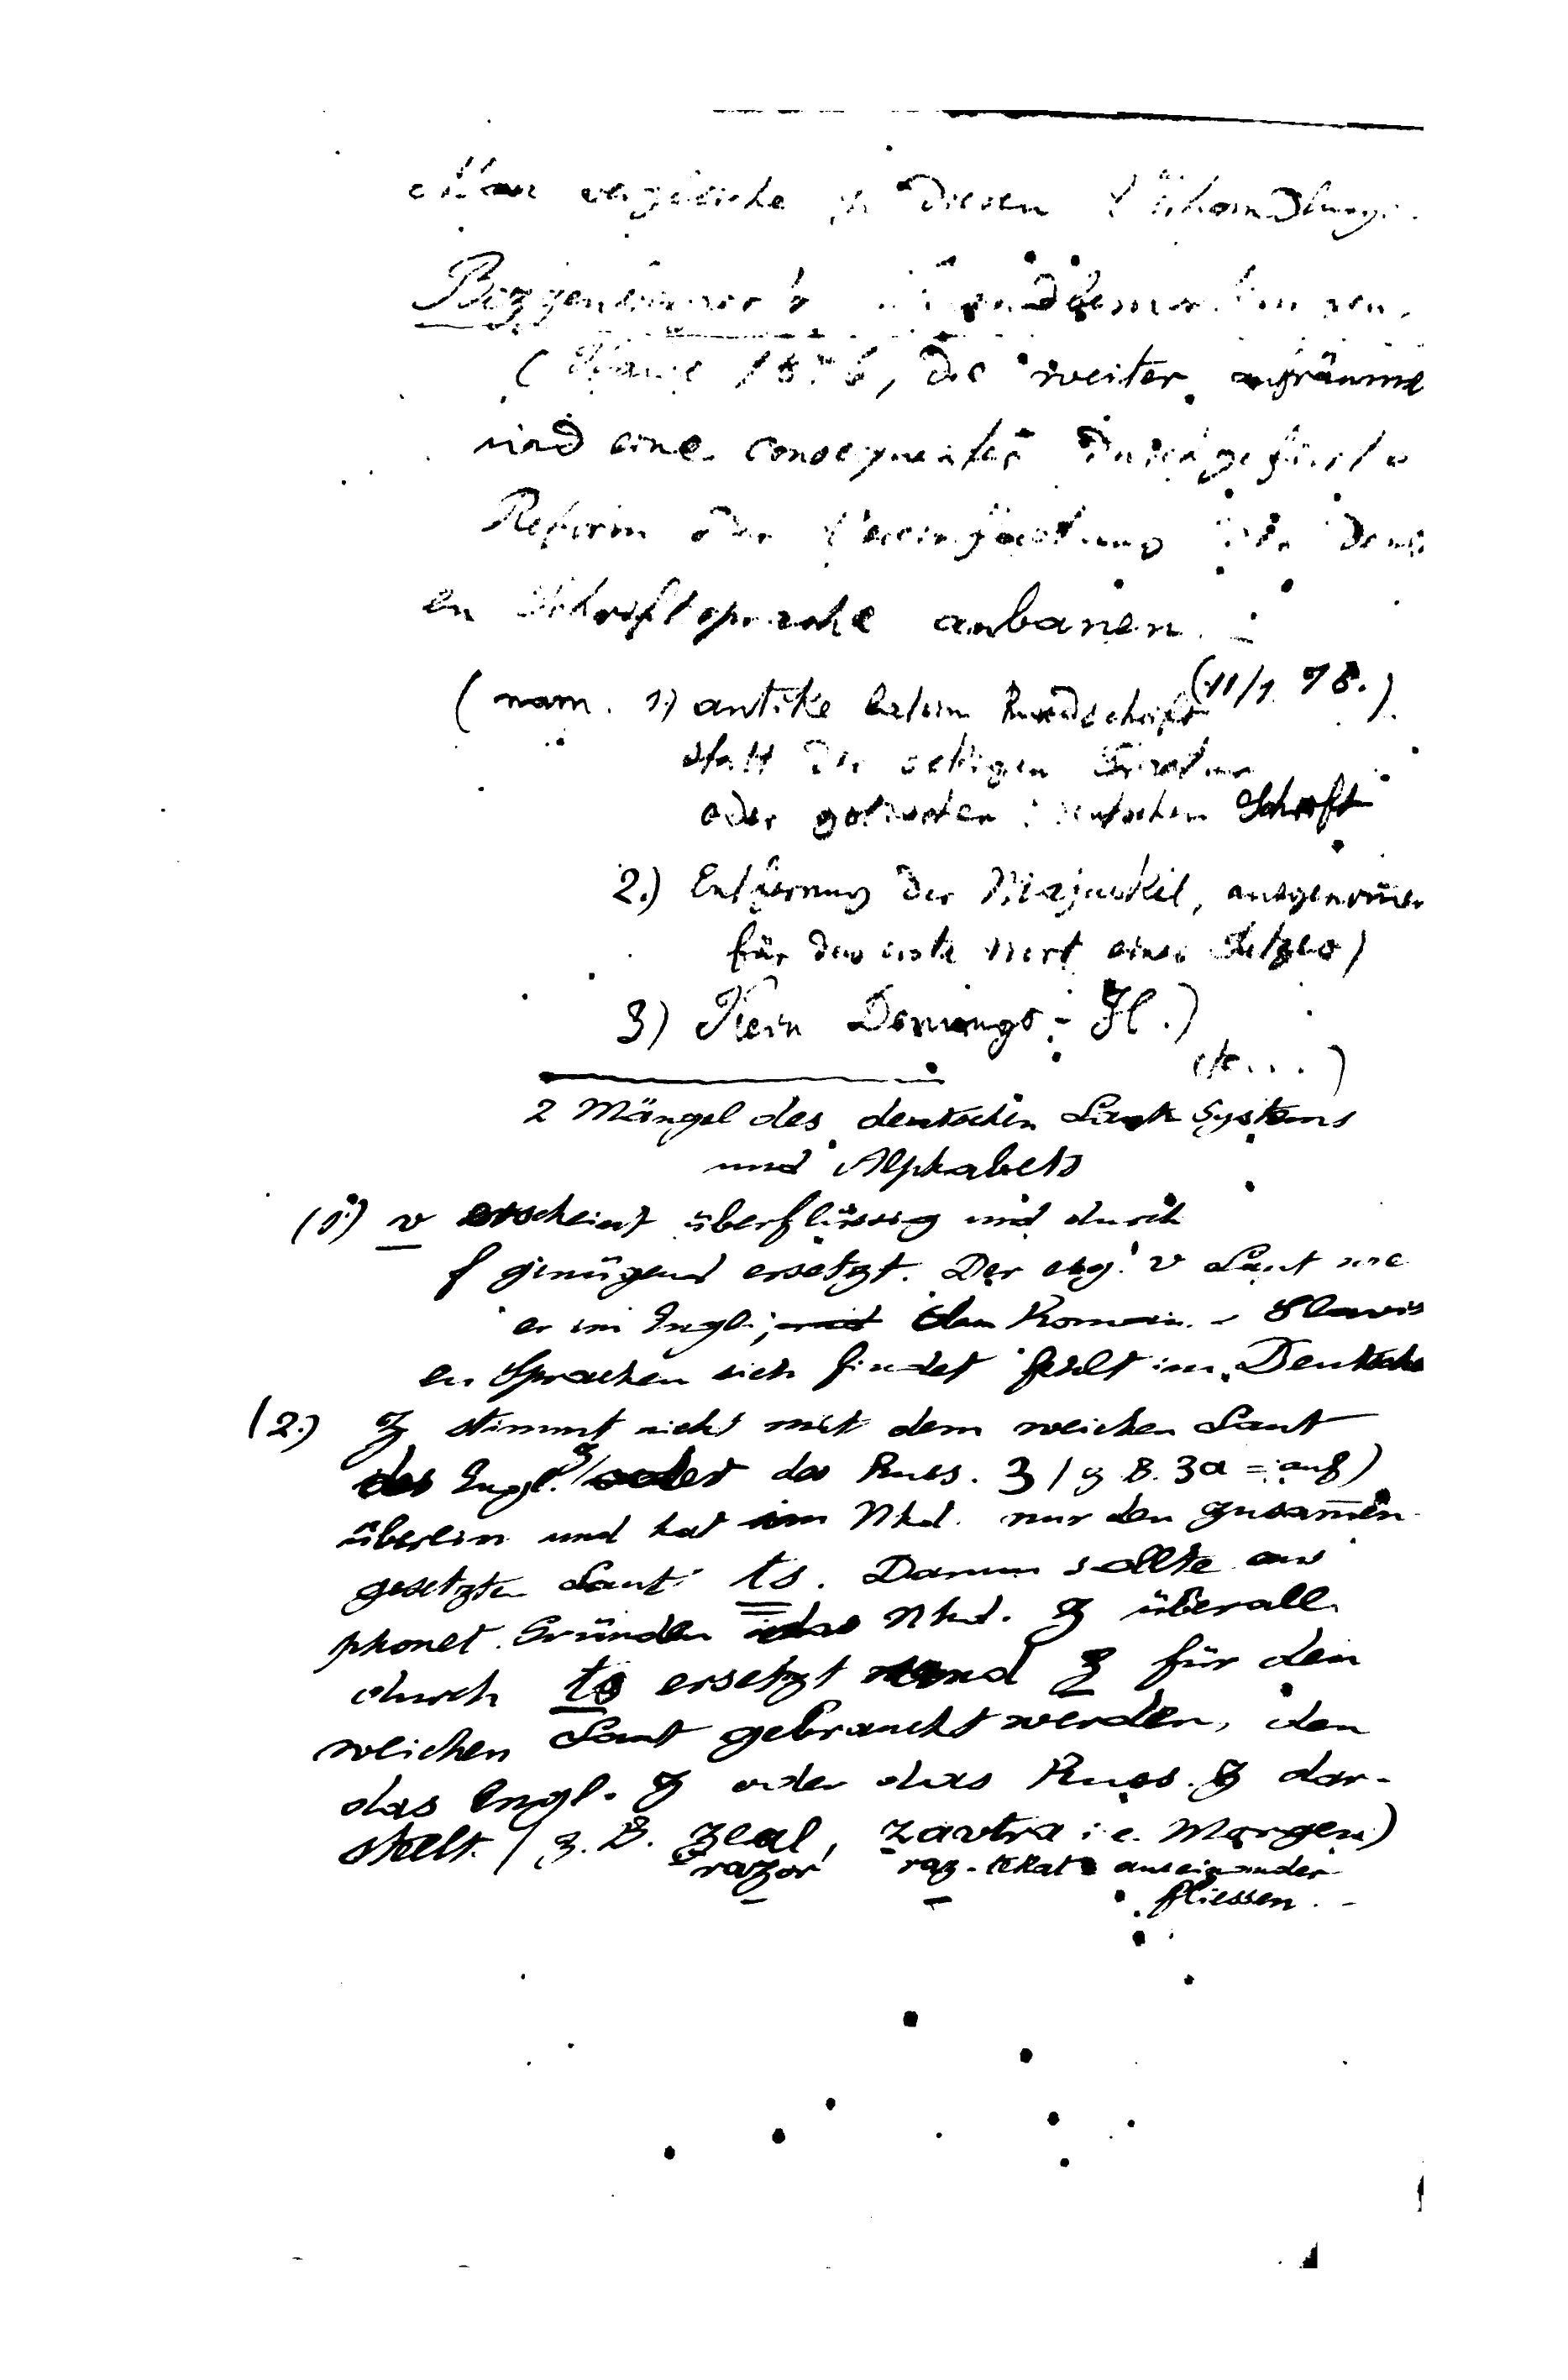 Man vergleiche zu diesen
(1876, die weiter aufräume
und eine consequenter durchgefürte
Reform oder Vereinfachung der deutsch
en Schriftsprache anbanen. -
(11/1 78.)
(nam. 1) antike latein Rundschrift
statt der eckigen
oder gotischen deutschen Schrift
2.) Entfernung der Majuskel, ausgenom̄en
für das erste wort eines Satzes)
3) Kein Denungs-H.)
etc...)
2 Mängel des deutschen Laut Systems
und Alphabets
(1.) v erscheint überflüssig und durch
f genügend ersetzt. Der eig. v Laut wie
er im Engl., den Roman. - Slavis
en Sprachen sich findet fehlt im Deutsche
(2.) z stimmt nicht mit dem weichen Laut
des Engl. z oder das Russ. З (z B. За = auf)
überein und hat im Nhd. nur den zusam̄en
gesetzten Laut ts. Darum sollte aus
phonet. Gründen das Nhd. z überall
durch ts ersetzt und z für den
weichen Laut gebraucht werden, den
das Engl. z oder das Russ. z dar-
stellt (z. B. zeal, zavtra i. e. Morgen)
razor raz-tekat auseinander
fliessen. -